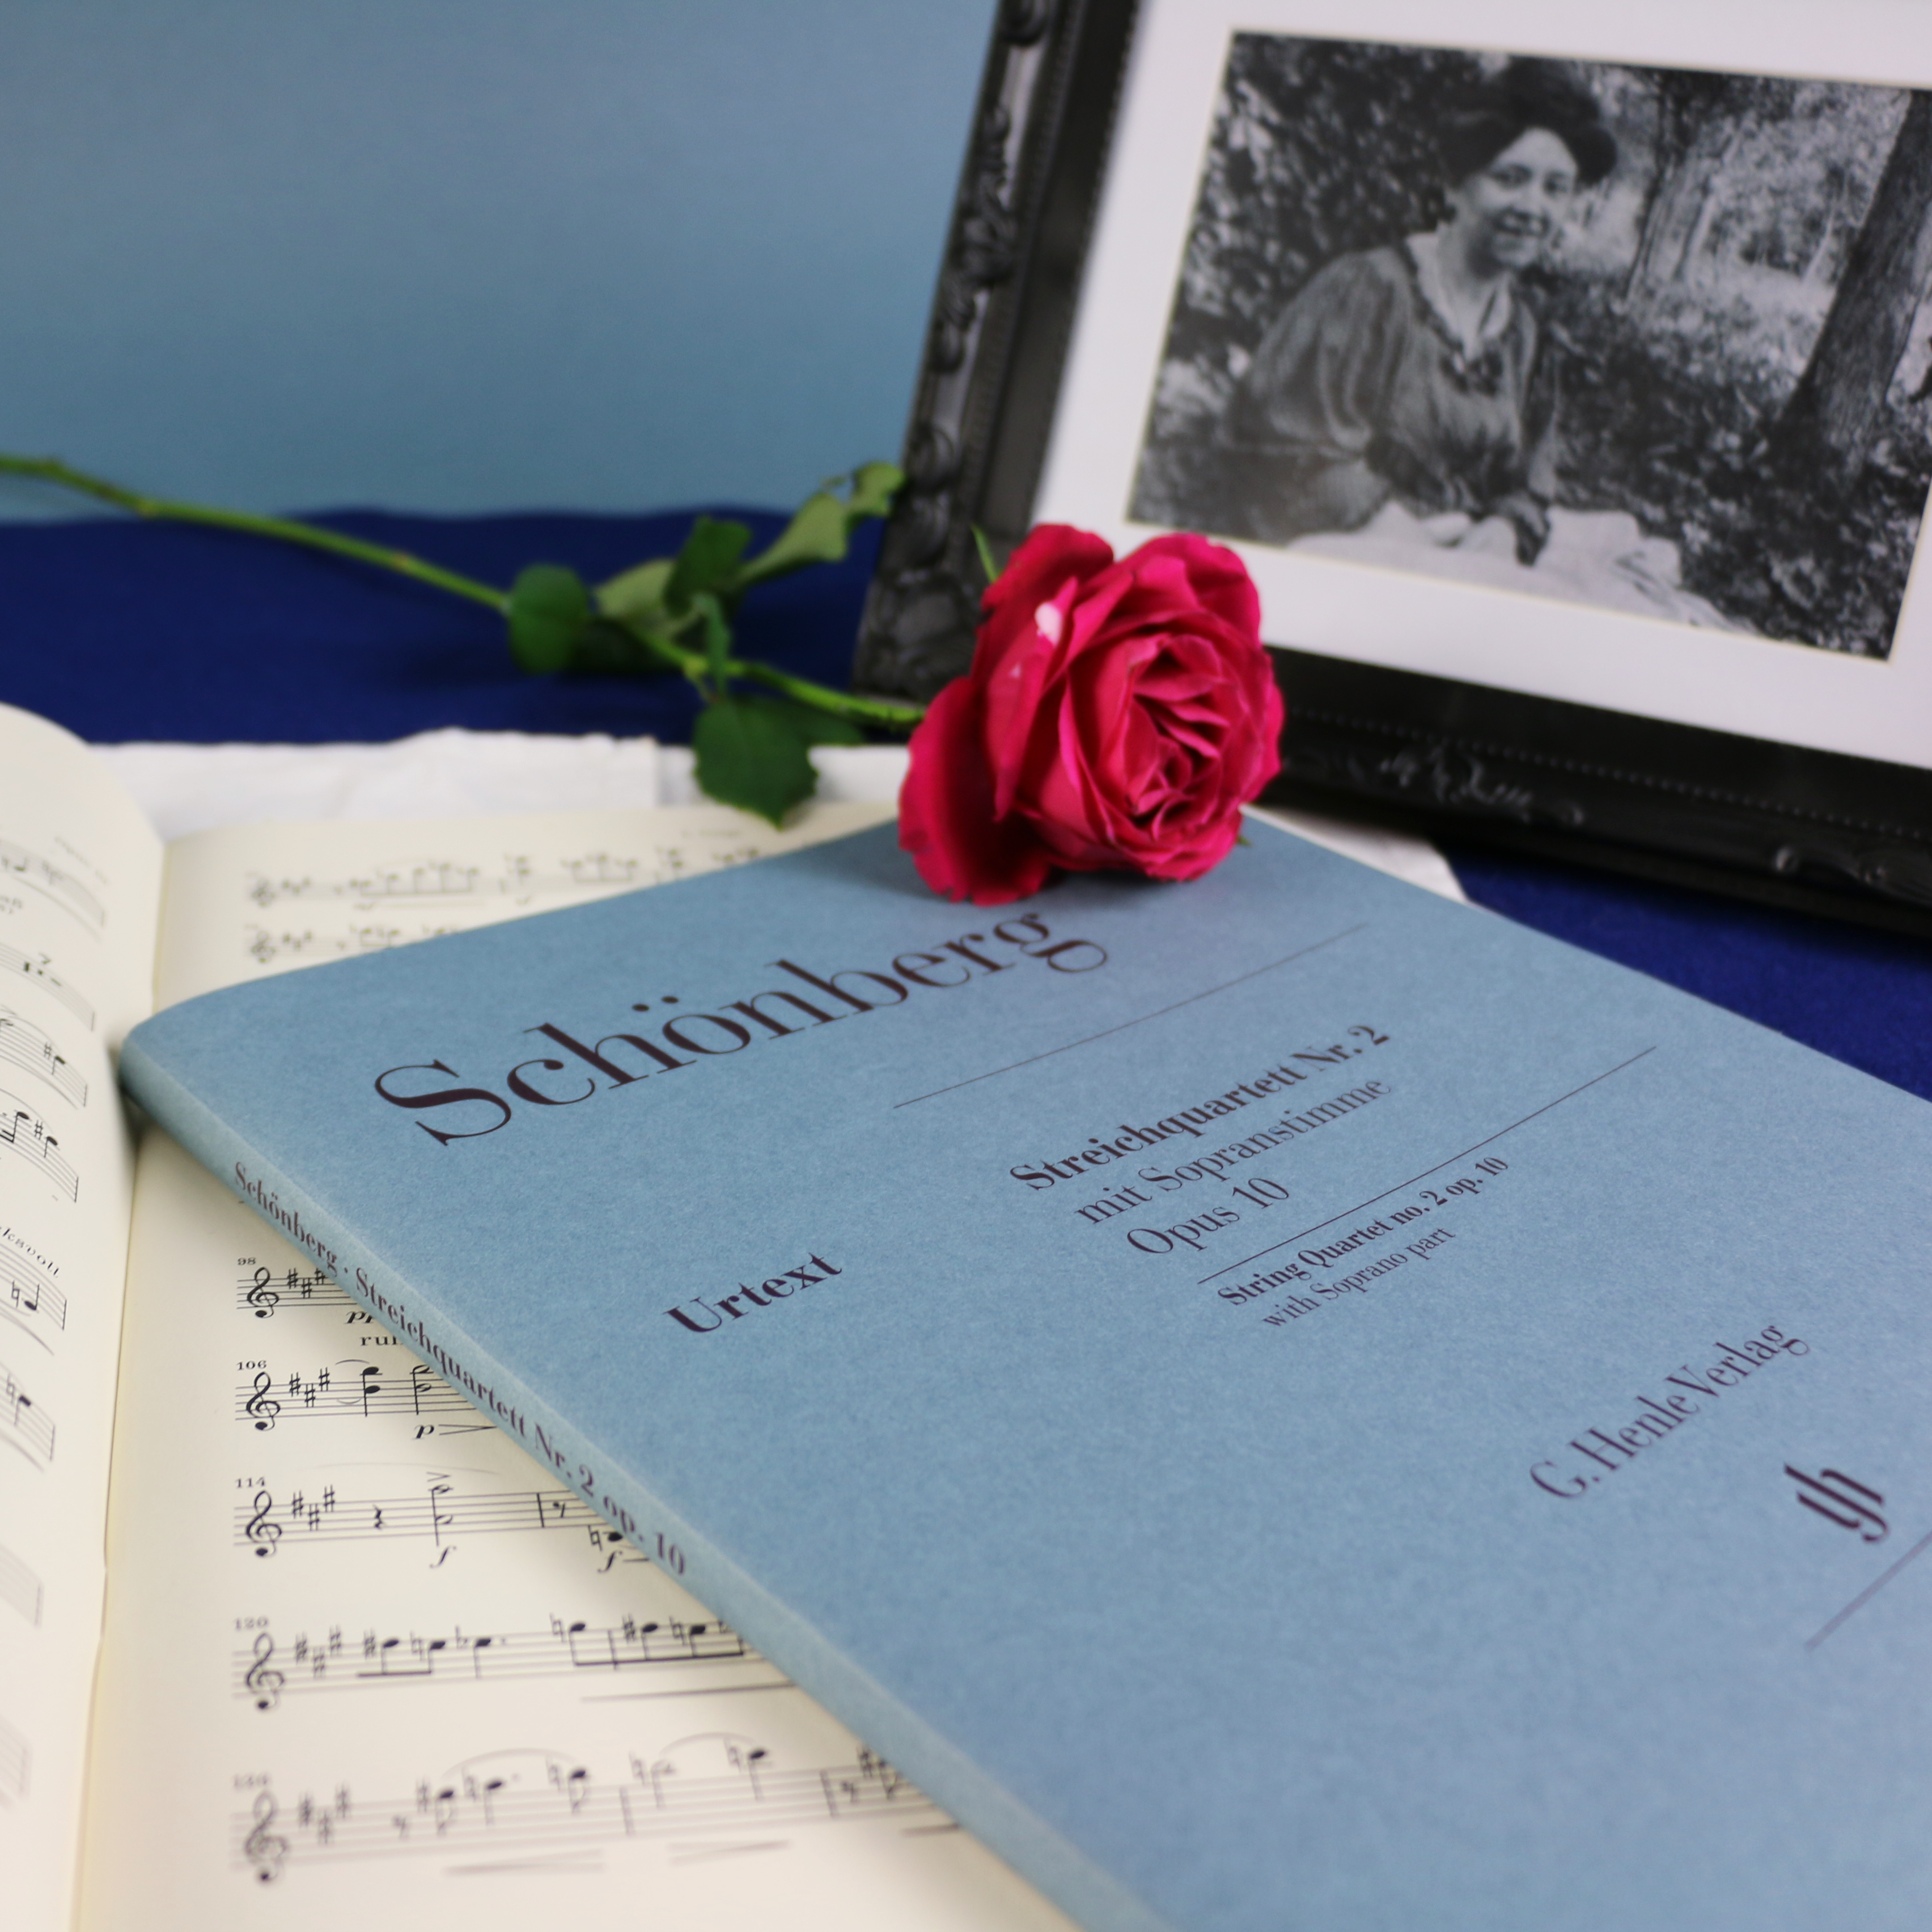 Schönberg
Streichquartett Nr. 2
mit Sopranstimme
Opus 10
String Quartet no. 2 op. 10
with Soprano part
Urtext
G. Henle Verlag
Schönberg · Streichquartett Nr. 2 op. 10
98
pp
106
p
114
f
f
120